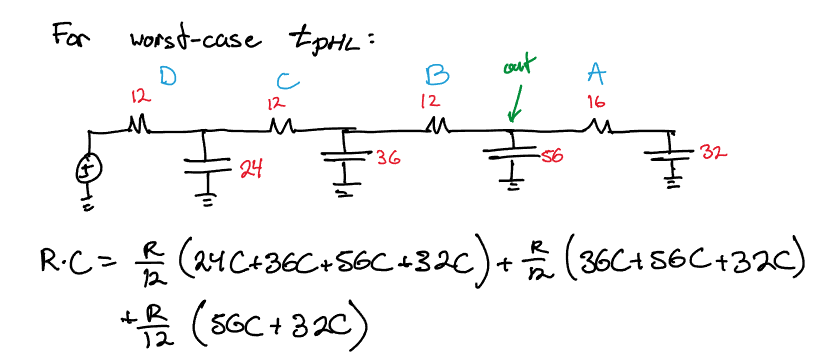 For worst-case tpHL:
D C B out A
12 12 12 16
24 36 56 32
R·C = R/12 (24C+36C+56C+32C) + R/12 (36C+56C+32C)
+ R/12 (56C+32C)